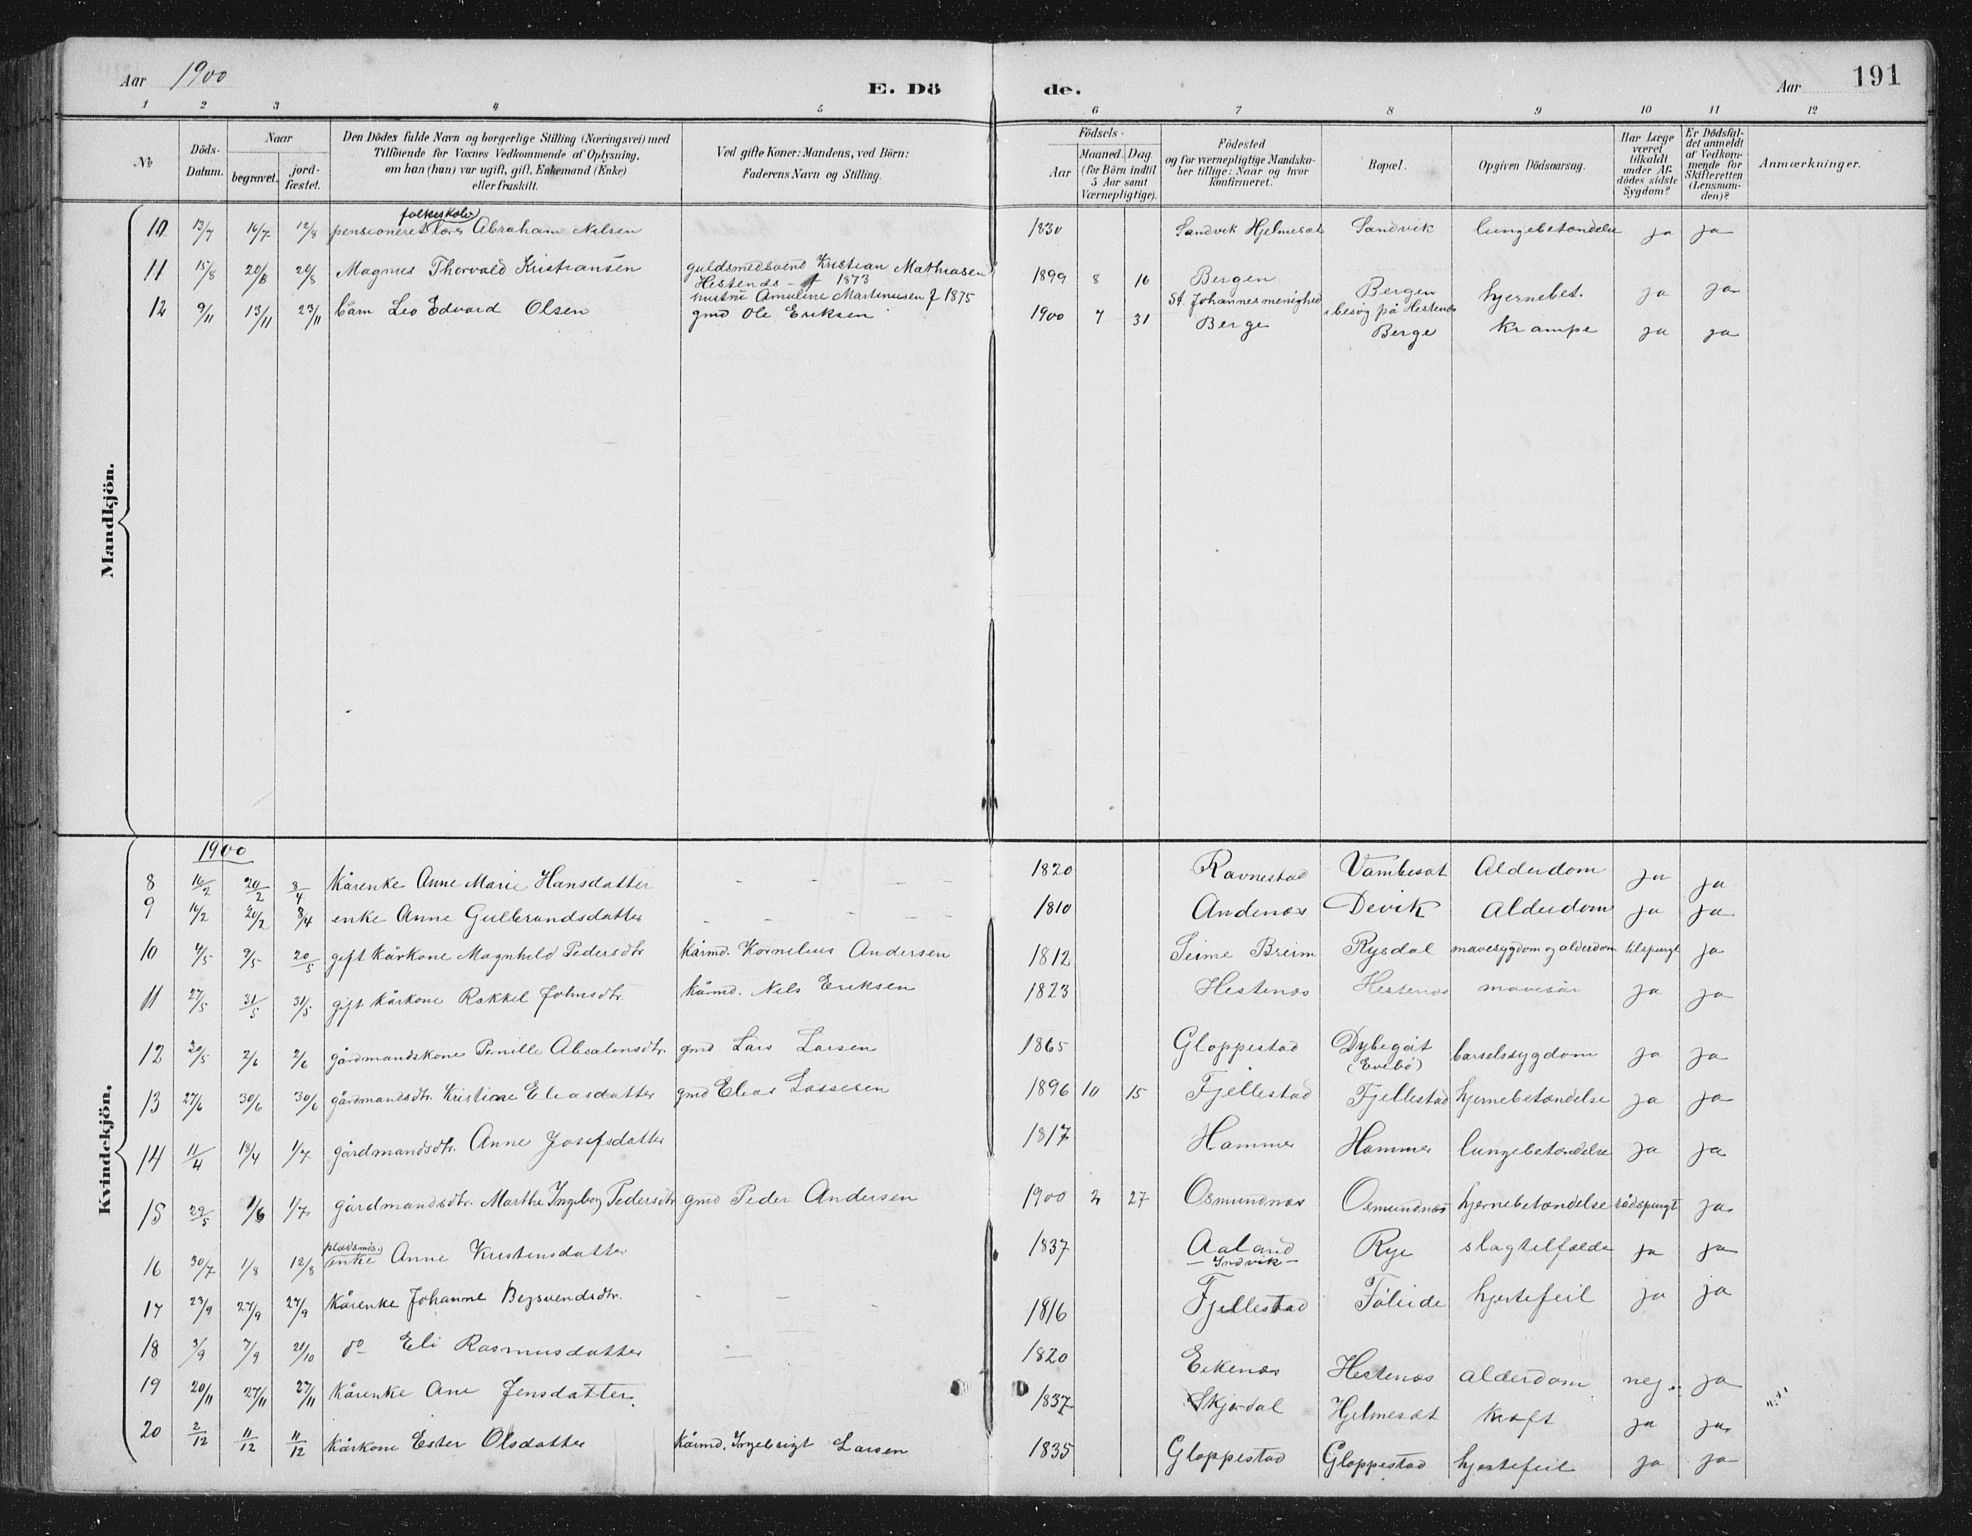 Aar 1900
E. Dö de.
Aar 191
1 2 3 4 5 6 7 8 9 10 11 12
No
Döds-Datum.
Naar begravet. jordfæstet.
Den Dödes fulde Navn og borgerlige Stilling (Næringsvei) med
Tilföiende for Voxnes Vedkommende af Oplysning,
om han (hun) var ugift, gift, Enkemand (Enke)
eller fraskilt.
Ved gifte Koner: Mandens, ved Börn:
Faderens Navn og Stilling.
Födsels-
Aar Maaned. Dag.
(for Börn indtil 5 Aar samt Værnepligtige).
Födested
og for værnepligtige Mandskaber tillige: Naar og hvor Konfirmeret.
Bopæl.
Opgiven Dödsaarsag.
Har Læge været tilkaldt under Afdödes sidste Sygdom?
Er Dödsfaldet anmeldt af Vedkommende for Skifteretten (Lensmanden)?
Anmærkninger.
Mandkjön.
folkeskole
10 13/7 16/7 12/8 pensioneret lærer Abraham Nilsen 1830 Sandvik Hjelmesæt Sandvik lungebetændelse ja ja
11 15/8 20/8 20/8 Magnus Thorvald Kristiansen guldsmedsvend Kristian Mathiasen 1899 8 16 Bergen Bergen hjernebet. ja ja
Hestenæs - f 1873 St. Johannes menighed i besög på Hestenæs
hustru Amuline Martinusen f 1875
12 9/11 13/11 23/11 barn Leo Edvard Olsen gmd Ole Eriksen 1900 7 31 Berge Berge krampe ja ja
Kvindekjön.
1900
8 16/2 20/2 8/4 Kårenke Anne Marie Hansdatter - - - 1820 Ravnestad Vambesæt Alderdom ja ja
9 16/2 20/2 8/4 enke Anne Gulbrandsdatter - - - - 1810 Andenæs Devik Alderdom ja ja
10 4/5 9/5 20/5 gift kårkone Magnhild Pedersdtr kårmd. Kornelius Andersen 1812 Seime Breim Rysdal mavesygdom og alderdom tilspurgt ja
11 27/5 31/5 31/5 gift kårkone Rakkel Johnsdtr. kårmd. Nils Eriksen 1823 Hestenæs Hestenæs mavesår ja ja
12 30/5 2/6 2/6 gårdmandskone Pernille Absalonsdtr. gmd Lars Larsen 1865 Gloppestad Dybegåt (Evebö) barselssygdom ja ja
13 27/6 30/6 30/6 gårdmandsdtr. Kristiane Eliasdatter gmd Elias Lassesen 1896 10 15 Fjellestad Fjellestad hjernebetændelse ja ja
14 11/4 18/4 1/7 gårdmandsdtr. Anne Josefsdatter 1817 Hammer Hammer lungebetændelse ja ja
15 29/5 9/6 1/7 gårdmandsdtr. Marthe Ingeborg Pedersdtr gmd Peder Andersen 1900 2 27 Osmundnæs Osmundnæs hjernebetændelse rådspurgt ja
16 30/7 1/8 12/8 pladsmds. enke Anne Kristensdatter 1837 Aaland - Indvik - Rye slagtilfælde ja ja
17 23/9 27/9 27/9 Kårenke Johanne Begsvendsdtr. - - - 1816 Fjellestad Föleide hjertefeil ja ja
18 3/9 7/9 21/10 do Eli Rasmusdatter 1820 Eikenæs Hestenæs alderdom nej. ja
19 20/11 27/11 27/11 Kårenke Ane Jensdatter. 1837 Skjerdal Hjelmesæt kræft ja ja
20 2/12 11/12 11/12 Kårkone Ester Olsdatter kårmd. Ingebrigt Larsen 1835 Gloppestad Gloppestad hjertefeil ja ja